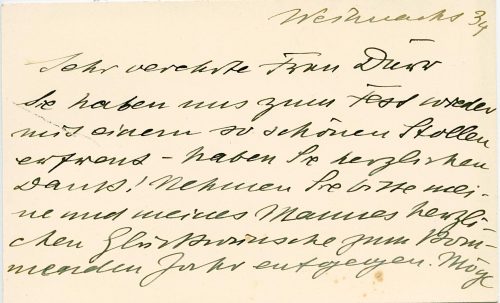 Weihnachts 39
Sehr verehrte Frau Dürr
Sie haben uns zum Fest wieder
mit einem so schönen Stollen
erfreut - haben Sie herzlichen
Dank! Nehmen Sie bitte mei-
ne und meines Mannes herzli-
chen Glückwünsche zum kom-
menden Jahr entgegen. Möge